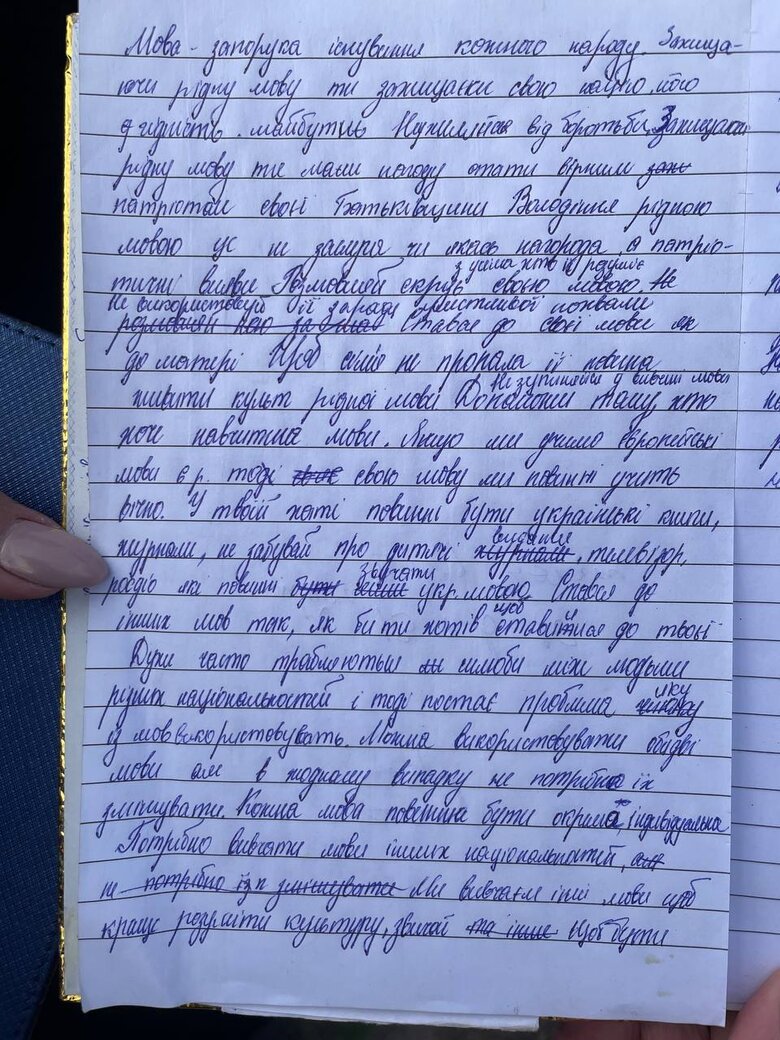 Мова - запорука існування кожного народу. Захища-
ючи рідну мову ти захищаєш свою націю, його
гідність. майбутнь Нехиляйся від боротьби. Захищаючи
рідну мову ти маєш нагоду стати вірним
патріотам своєї Батьківщини Володіння рідною
мовою це не заслуга чи якась нагорода, а патріо-
з усіма, хто її розуміє
тичні вияви Розмовляй скрізь свою мовою. Не
Не використовуй її заради похвали
розмовляй Ставає до своєї мови як
до матері Щоб вона не пропала її повина
Не зупиняйся у вивчені мови
живити культ рідної мови Допоможи тому, хто
хоче навчитись мови. Якщо ми учимо європейські
мови є р. тоді свою мову ми повинні учить
вічно. У твоїй хаті повинні бути українські книги,
видання
журнали, не забувай про дитячі журнали, телевізор,
звучати
радіо які повинні бути укр. мовою. Стався до
щоб
інших мов так, як би ти хотів ставитися до твоєї
Дуже часто трабляються шлюби між людьми
яку
різних національностей і тоді постає проблема
із мов використовувать. Можна використовувати обидві
мови але в жодному випадку не потрібно їх
змішувати. Кожна мова повинна бути окрима, індивідуальна
Потрібно вивчати мови інших національностей,
не потрібно їх змішувати Ми вивчаєм інші мови щоб
краще розуміти культуру, звичаї та інше Щоб бути